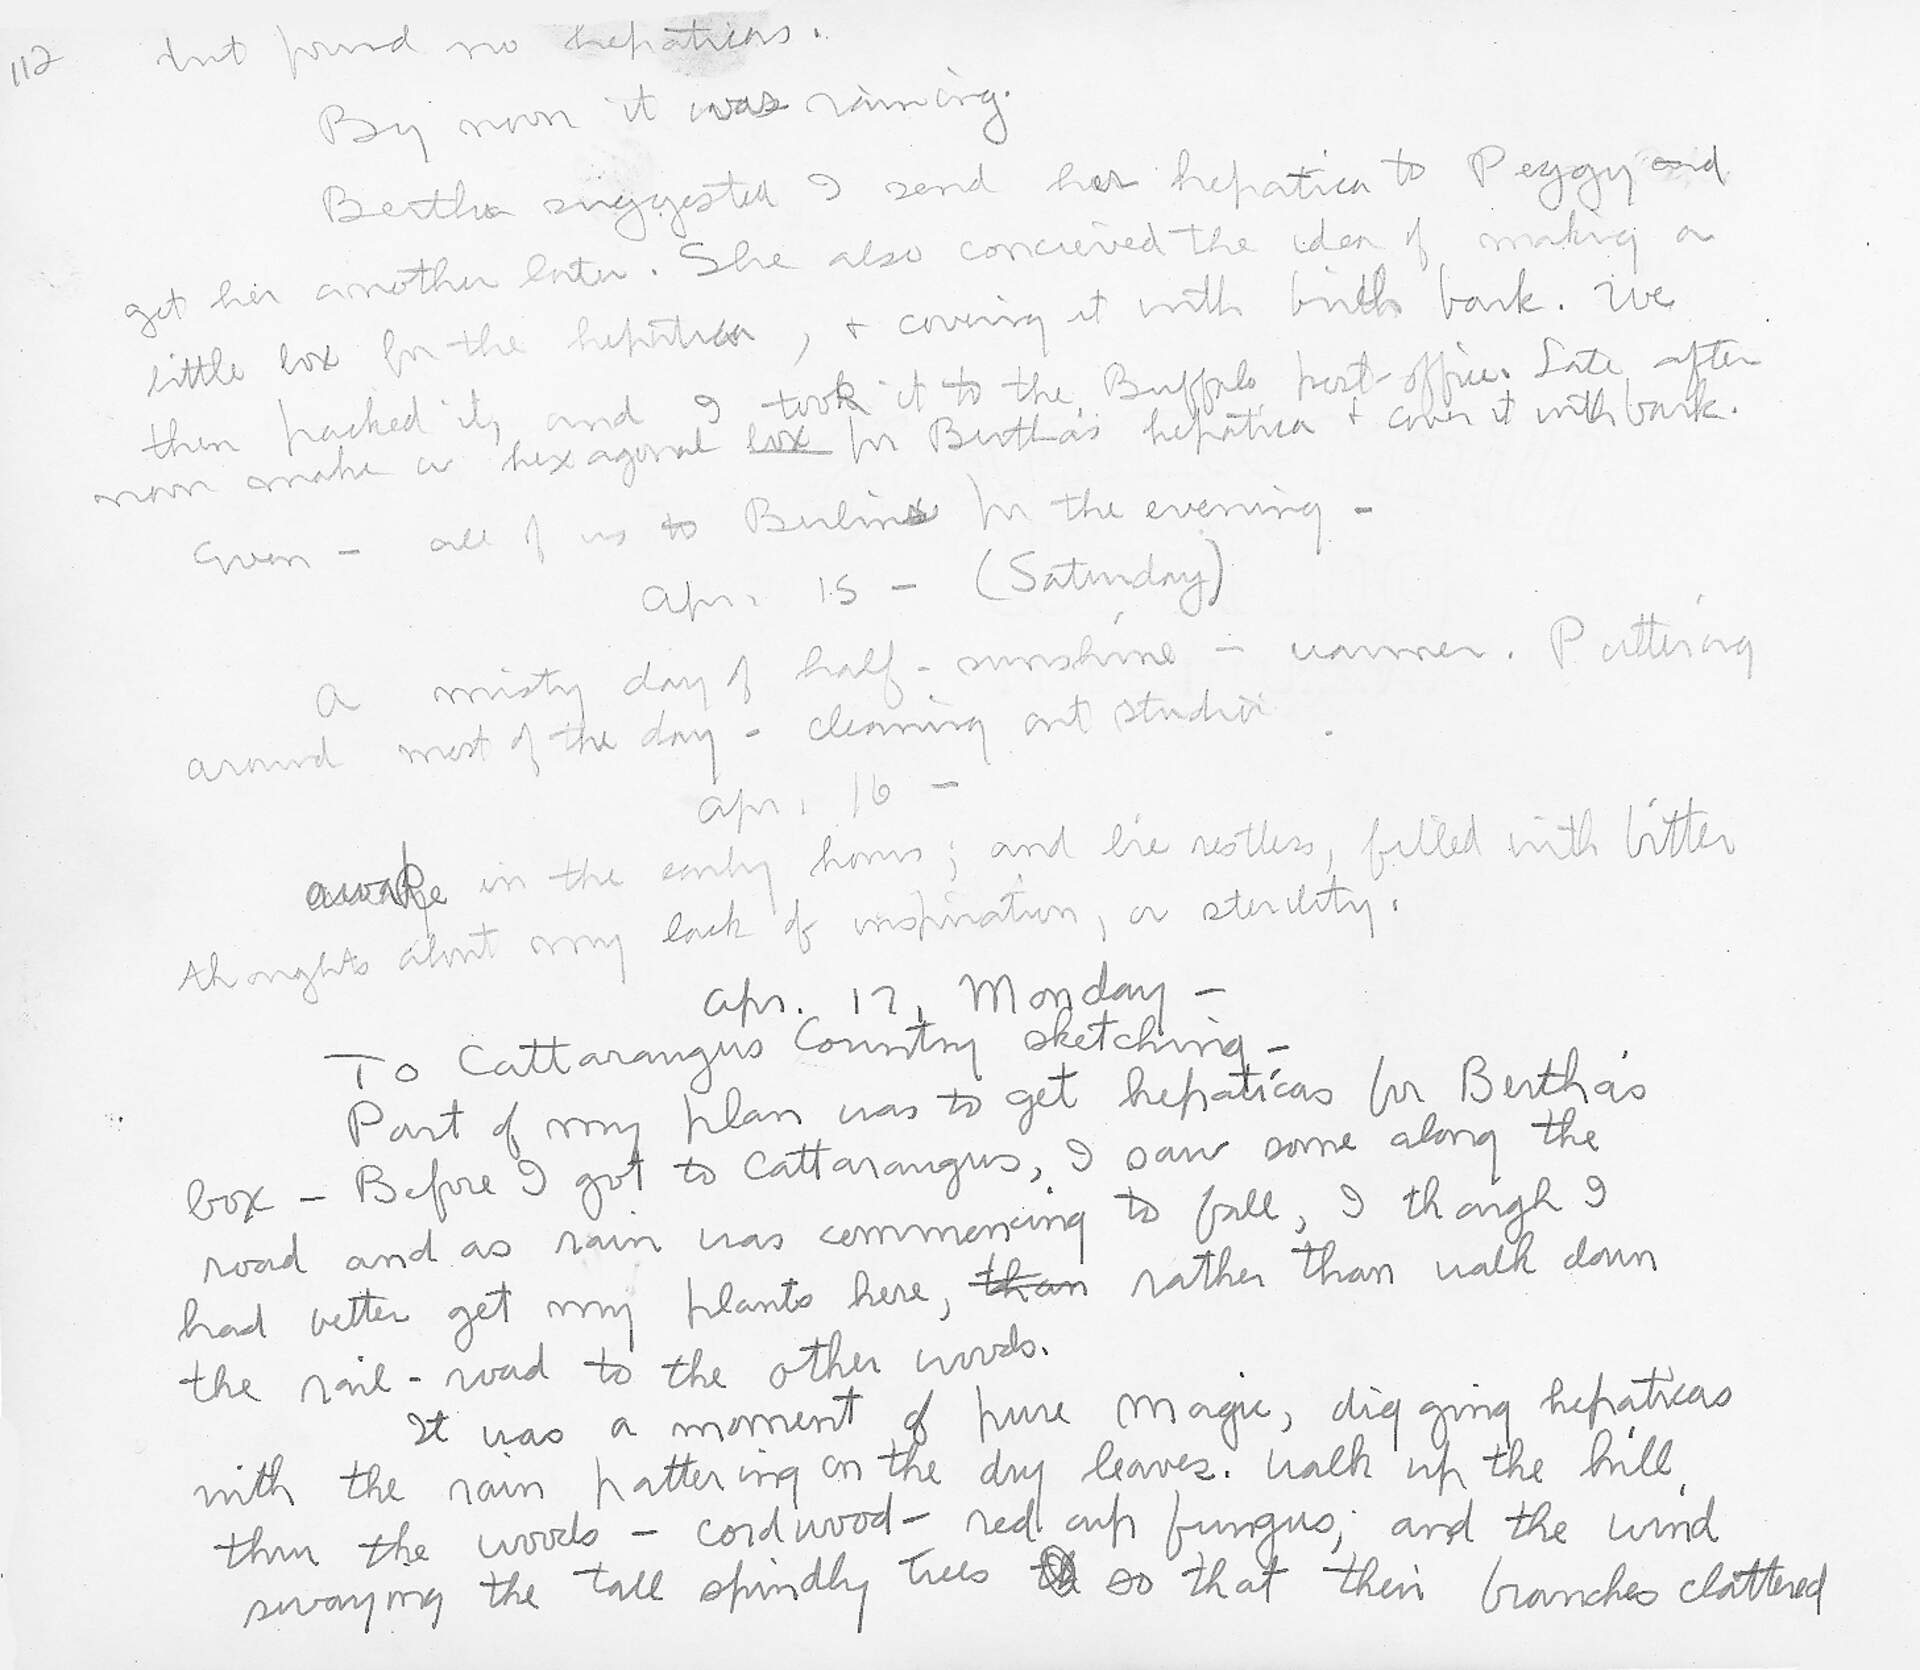 112 but found no hepaticas.
By noon it was raining.
Bertha suggested I send her hepatica to Peggy and
get her another later. She also concieved the idea of making a
little box for the hepatica, + covering it with birch bark. We
then packed it, and I took it to the Buffalo post-office. Late after
noon make a hexagonal box for Bertha's hepatica + cover it with bark.
Even - all of us to Berlins for the evening -
Apr. 15 - (Saturday)
A misty day of half-sunshine - warmer. Puttering
around most of the day - cleaning out studio.
Apr. 16 -
Awake in the early hours; and lie restless, filled with bitter
thoughts about my lack of inspiration, or sterility.
Apr. 17, Monday -
To Cattaraugus Country sketching -
Part of my plan was to get hepaticas for Bertha's
box - Before I got to Cattaraugus, I saw some along the
road and as rain was commencing to fall, I though I
had better get my plants here, than rather than walk down
the rail-road to the other woods.
It was a moment of pure magic, digging hepaticas
with the rain pattering on the dry leaves. Walk up the hill
thru the woods - cordwood - red cup fungus; and the wind
swaying the tall spindly trees so that their branches clattered